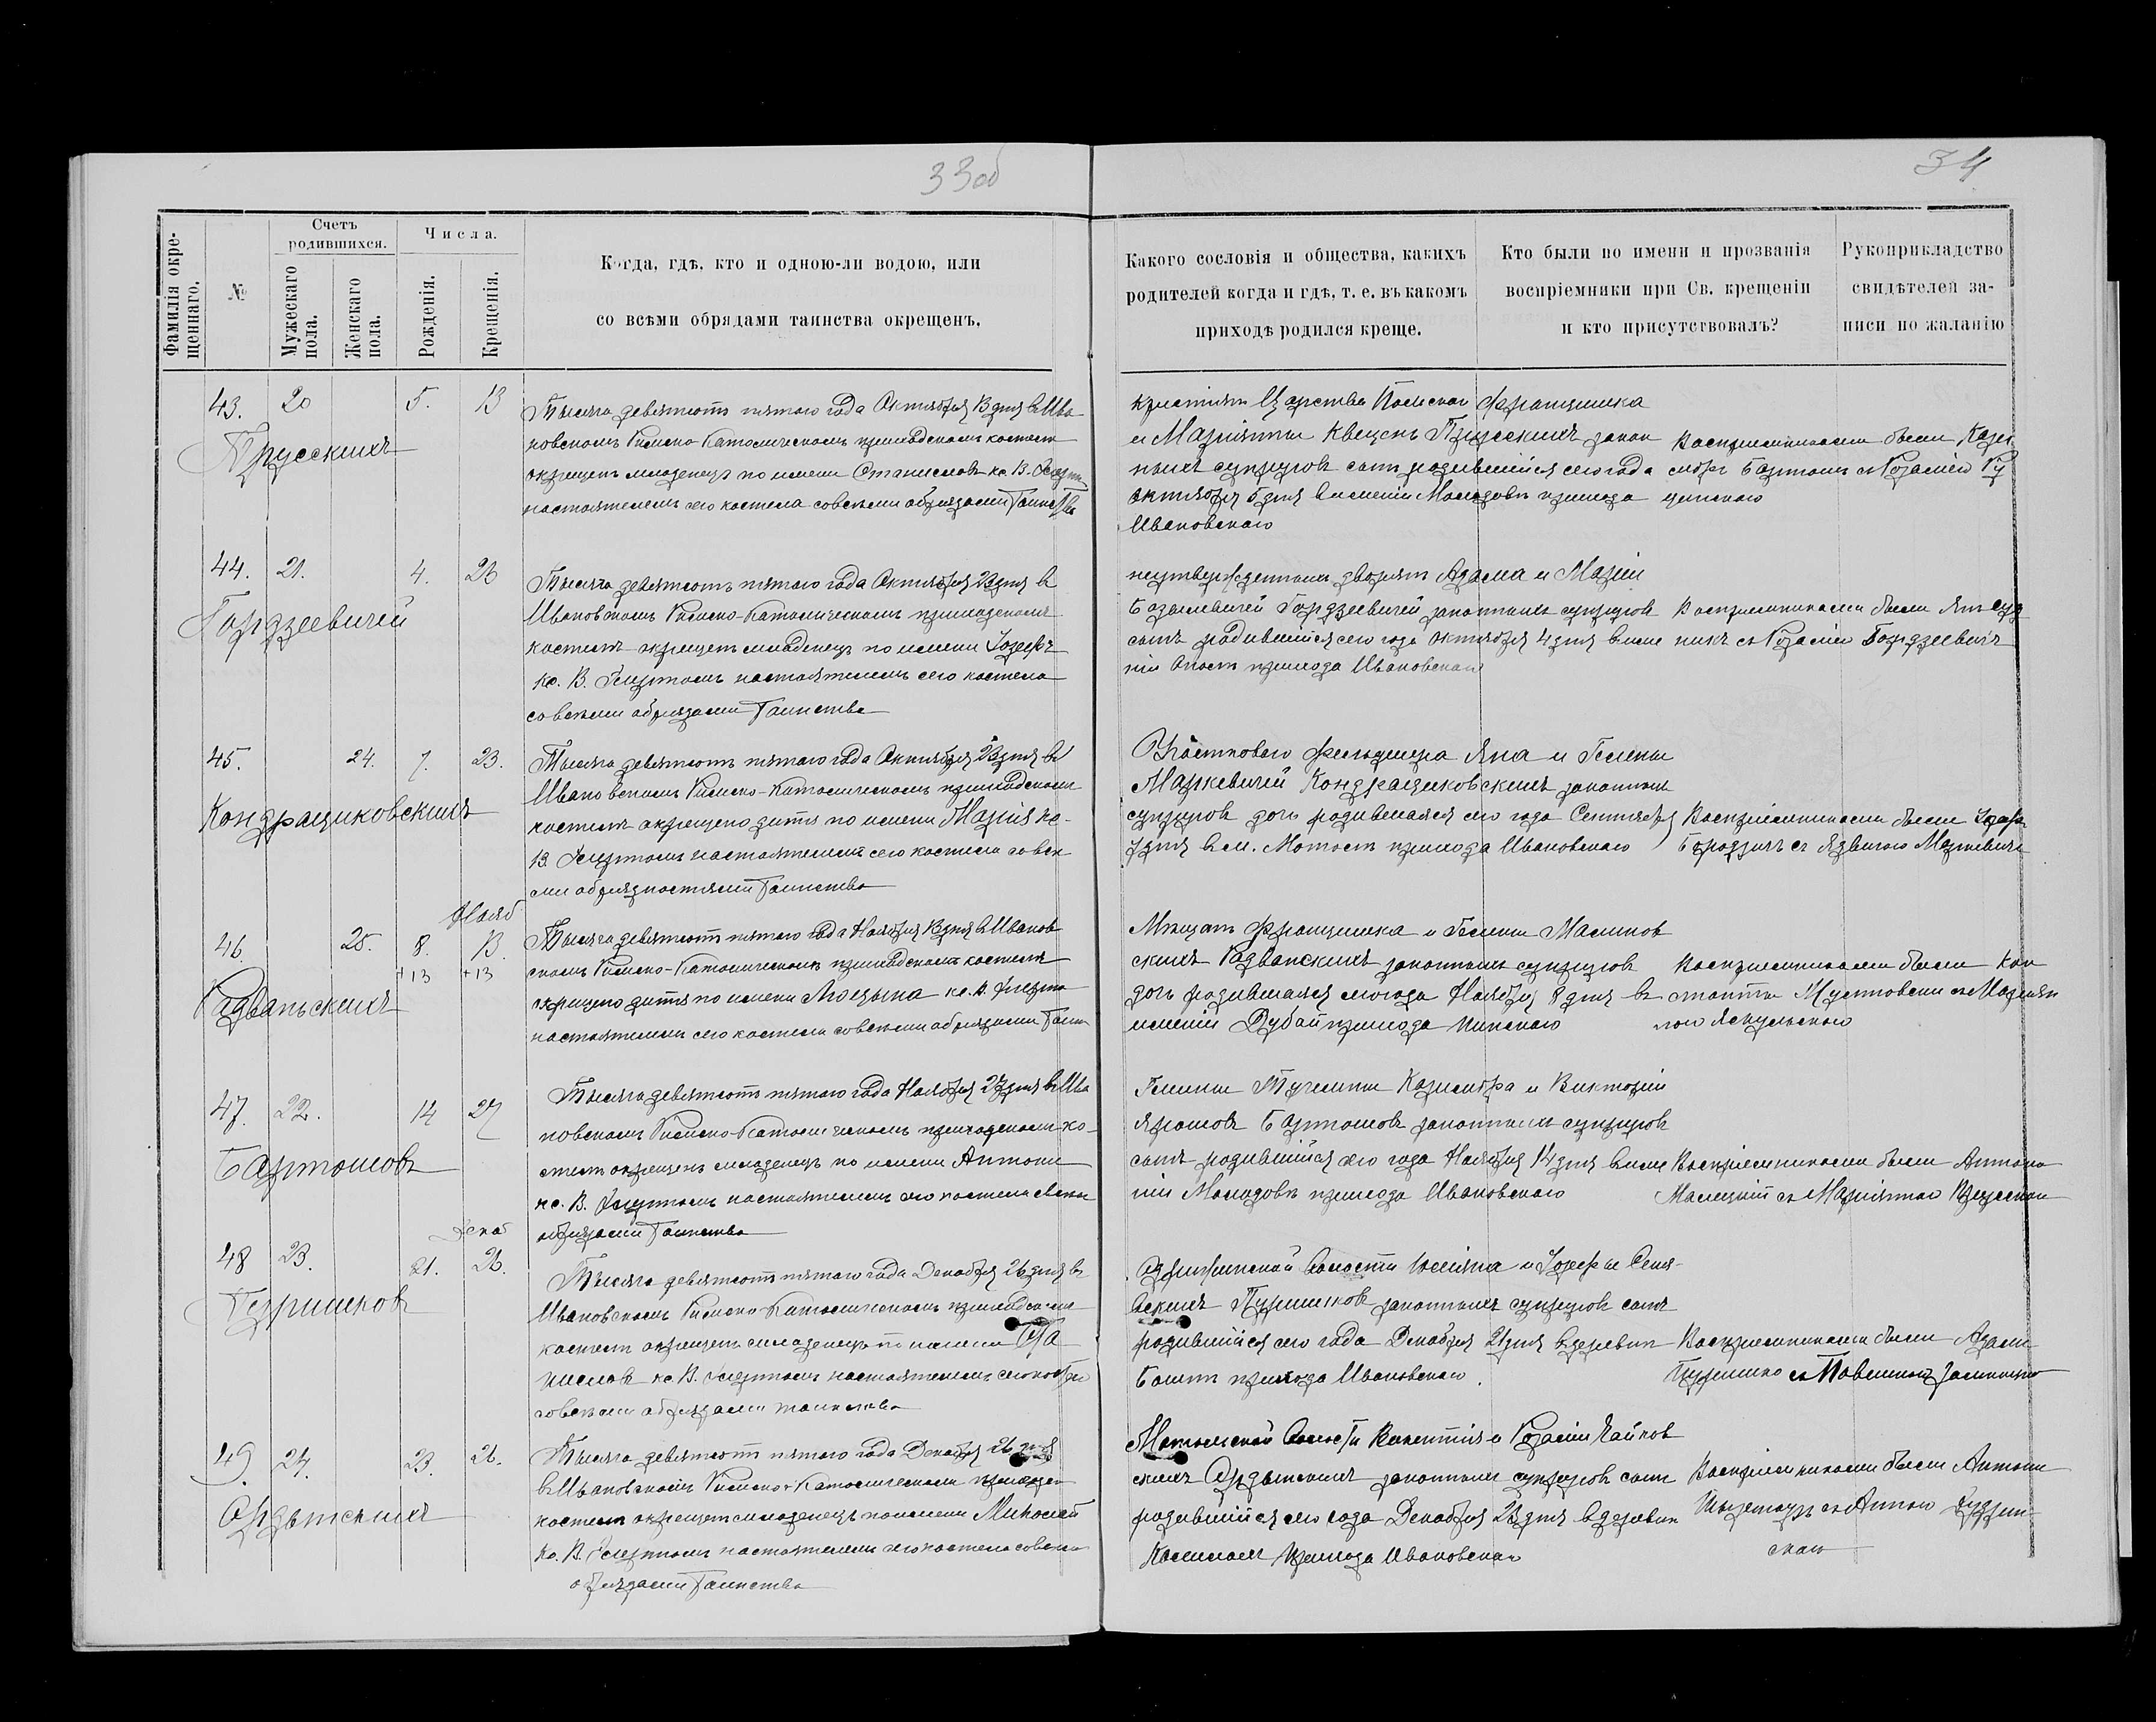 33об
34
Фамилія окре-
щеннаго.
№
Счетъ
родившихся.
Мужескаго
пола.
Женскаго
пола.
Числа.
Рожденія.
Крещенія.
Когда, гдѣ, кто и одною-ли водою, или
со всѣми обрядами таинства окрещенъ.
Какого сословія и общества, какихъ
родителей когда и гдѣ, т. е. въ какомъ
приходѣ родился креще.
Кто были по имени и прозванія
воспріемники при Св. крещеніи
и кто присутствовалъ?
Рукоприкладство
свидѣтелей за-
писи по жаланію
43. 20 5. 13
Прусскихъ
Тысяча девятьсотъ пятого года Октября 13 дня въ Ива
новскомъ Римско-Католическомъ приходскомъ костелѣ
окрещенъ младенецъ по имени Станиславъ кс. В.
настоятелемъ сего костела со всѣми обрядами Таинства
крестьянъ Царства Польскаго Францишка
и Маріянны Квецень Прусскихъ закон
ныхъ супруговъ сынъ родившійся сего года
октября 5 дня въ имѣніи Молодовѣ прихода
Ивановскаго
Воспріемниками были Кази
міръ Бартошъ съ Розаліею
44. 21. 4. 23
Гордзеевичей
Тысяча девятьсотъ пятого года Октября 23 дня въ
Ивановскомъ Римско-Католическомъ приходскомъ
костелѣ окрещенъ младенецъ по имени Іозефъ
кс. В. настоятелемъ сего костела
со всѣми обрядами Таинства
неутвержденныхъ дворянъ Адама и Маріи
Гордзеевичей законныхъ супруговъ
сынъ родившійся сего года октября 4 дня въ имѣ
ніи прихода Ивановскаго
Воспріемниками были Янъ
съ Розаліею Гордзеевичъ
45. 24. 7. 23.
Кондрациковскихъ
Тысяча девятьсотъ пятого года Октября 23 дня въ
Ивановскомъ Римско-Католическомъ приходскомъ
костелѣ окрещено дитя по имени Марія кс.
В. настоятелемъ сего костела со всѣ
ми обрядностями Таинства
Участковаго фельдшера Яна и Гелены
Маркевичей Кондрациковскихъ законныхъ
супруговъ дочь родившаяся сего года Сентября
7 дня въ м. Мотолѣ прихода Ивановскаго
Воспріемниками были Іозефъ
Бородзичъ съ Ядвигою Маркевичъ
Нояб
46. 25. 8. 13.
+13 +13
Радванскихъ
Тысяча девятьсотъ пятого года Ноября 13 дня въ Иванов
скомъ Римско-Католическомъ приходскомъ костелѣ
окрещено дитя по имени Люцына кс. В.
настоятелемъ сего костела со всѣми обрядами Таин
Мѣщанъ Францишка и Гелены Малинов
скихъ Радванскихъ законныхъ супруговъ
дочь родившаяся сего года Ноября 8 дня въ
имѣніи Дубой прихода Пинскаго
Воспріемниками были Кон
стантый съ
47. 22. 14 27
Бартошовъ
Тысяча девятьсотъ пятого года Ноября 27 дня въ Ива
новскомъ Римско-Католическомъ приходскомъ ко-
стелѣ окрещенъ младенецъ по имени Антоній
кс. В. настоятелемъ сего костела со всѣми
обрядами Таинства
Гмины Казиміра и Викторіи
Ярошовъ Бартошовъ законныхъ супруговъ
сынъ родившійся сего года Ноября 14 дня въ имѣ
ніи Молодовѣ прихода Ивановскаго
Воспріемниками были Антоній
Малецкій съ Маріянною Прусскою
Декаб
48 23. 21. 26.
Тысяча девятьсотъ пятого года Декабря 26 дня въ
Ивановскомъ Римско-Католическомъ приходскомъ
костелѣ окрещенъ младенецъ по имени Ста
ниславъ кс. В. настоятелемъ сего костела
со всѣми обрядами таинства
волости и Іозефы
законныхъ супруговъ сынъ
родившійся сего года Декабря 21 дня въ деревнѣ
прихода Ивановскаго.
Воспріемниками были Адамъ
49. 24. 23. 26.
Ордынскихъ
Тысяча девятьсотъ пятого года Декабря 26 дня
въ Ивановскомъ Римско-Католическомъ приход
костелѣ окрещенъ младенецъ по имени Миколай
Кс. В. настоятелемъ сего костела со всѣми
обрядами Таинства
Мотольской волости Викентія и Розаліи Чайков
скихъ Ордынскихъ законныхъ супруговъ сынъ
родившійся сего года Декабря 23 дня въ деревнѣ
прихода Ивановскаго
Воспріемниками были Антоній
съ Анною
скою